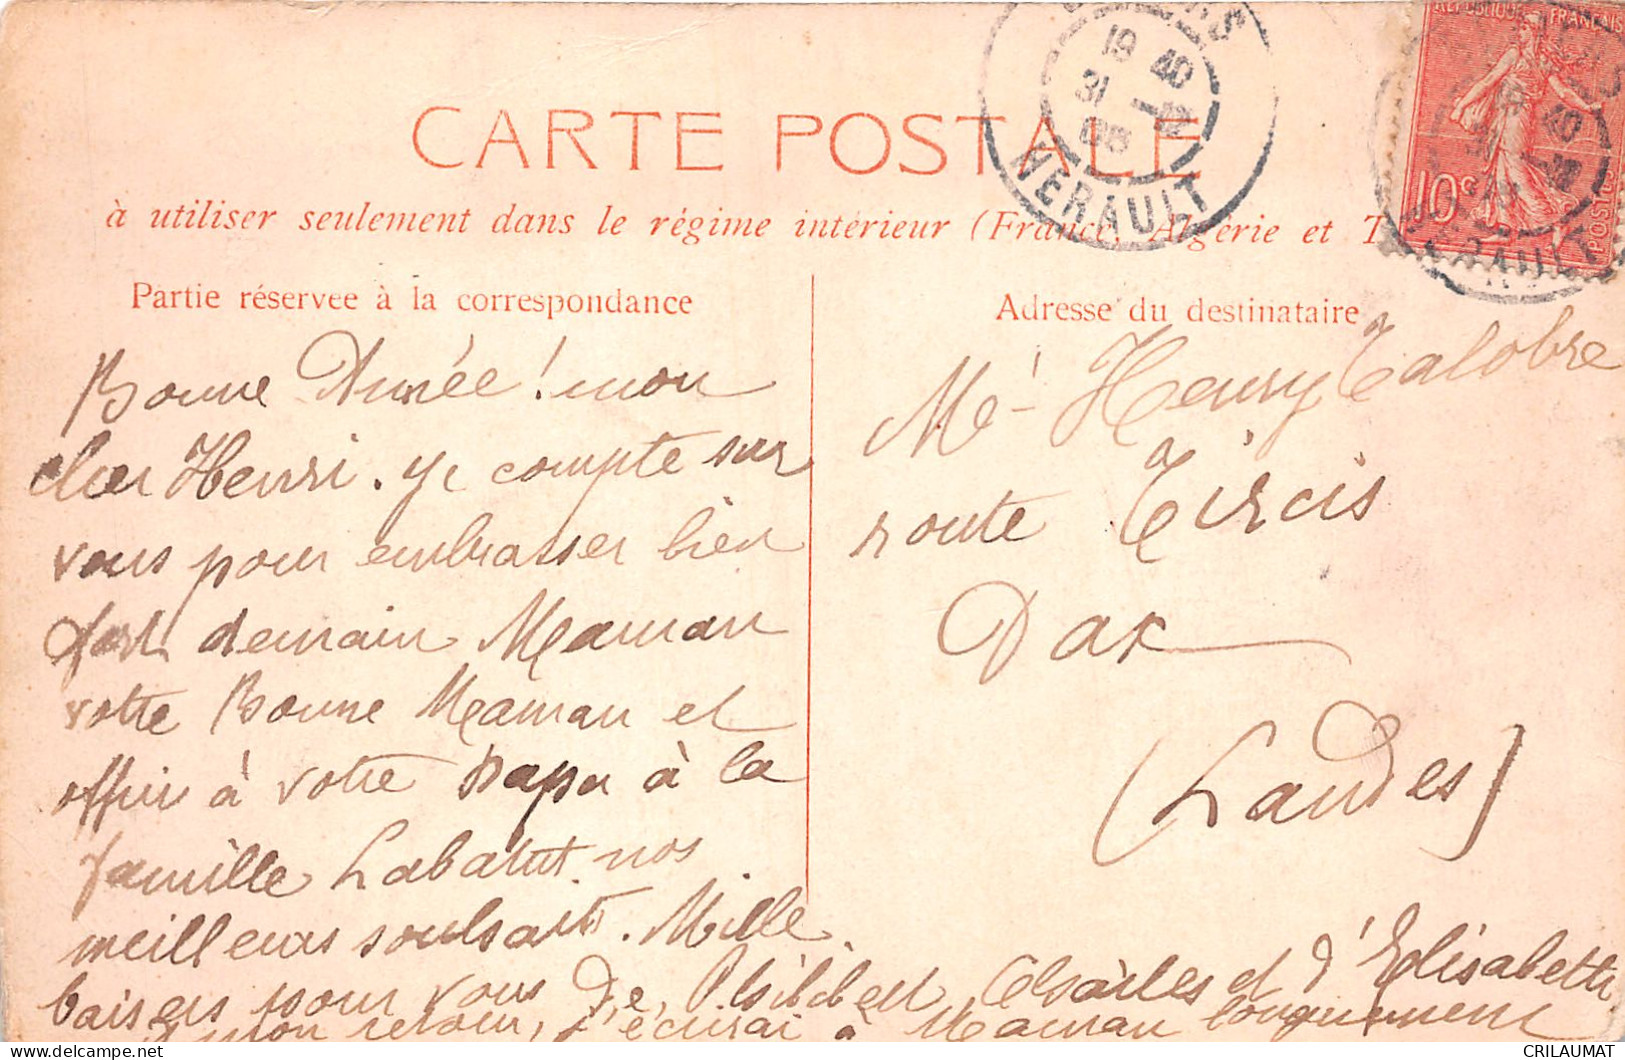 CARTE POSTALE
à utiliser seulement dans le régime intérieur (France, Algérie et T
Partie réservée à la correspondance
Bonne Année ! mon
cher Henri. Je compte sur
vous pour embrasser bien
fort demain Maman
votre Bonne Maman et
offrir à votre papa à la
famille Labatut nos
meilleurs souhaits. Mille
baisers pour vous De Philibert Charles et d'Elisabeth
A mon retour, j'écrirai à Maman longuement
Adresse du destinataire
Mr Henry Talobre
route Tircis
Dax
(Landes)
19 40
31 12
HERAULT
REPUBLIQUE FRANÇAISE
10c
POSTES
HERAULT
CRILAUMAT